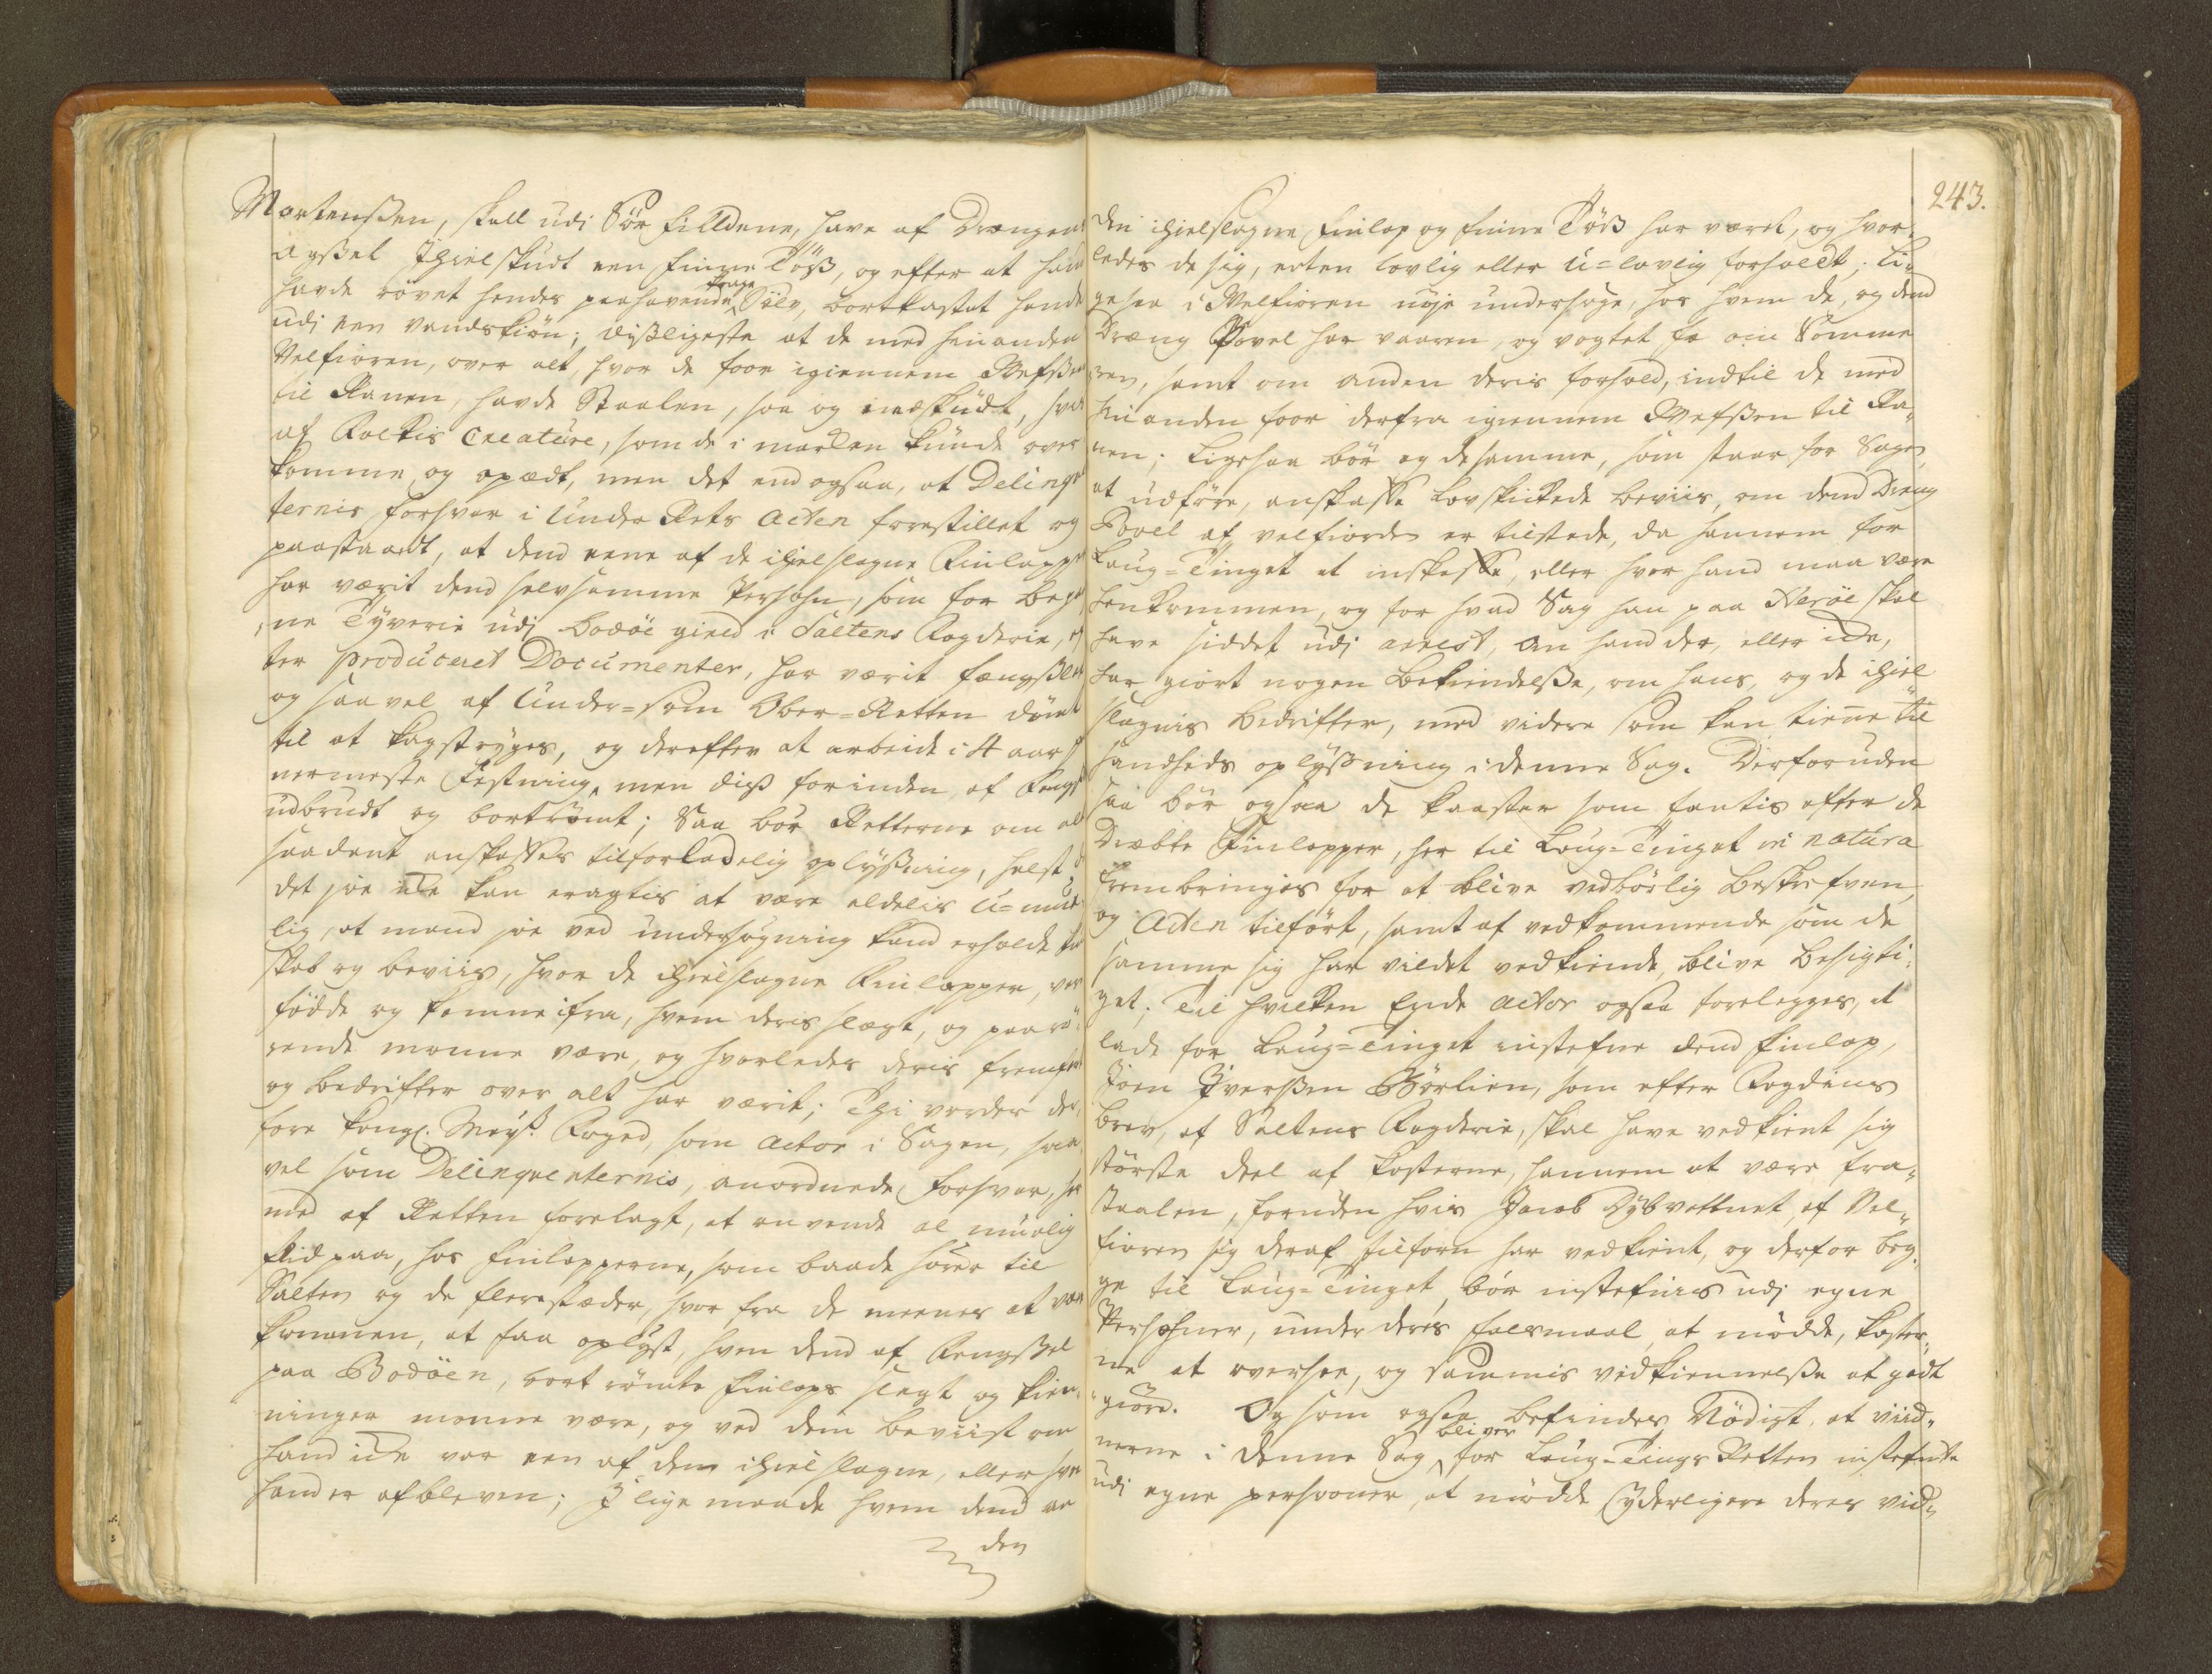 Mortenßen, skall udi Sör Filldene, have af Drengen
Axßel Ihielskudt een finne Töß, og efter at hand
havde rövet hendes paahavende Krage Sölv, bortkastet hende
udi een vandskiön; dißligeste at de med hinanden
Velfioren, over alt, hvor de foor igiennem Wefßen
til Ranen, havde Staalen, saa og needskudt, hvad
af Folkis Creature, som de i marken kunde over
komme, og opædt, men det end ogsaa, at Delinqven
ternis forsvar i Under Rets acten forestillet og
paastaaedt, at dend eene af de ihielslagne Finlapper
har værit dend selvsamme Persohn, som for begaa
„ne Tyverie udj Bodöe gield i Saltens Fogderie, ef
ter produceret Documenter, har værit fængßlet
og saavel af Under= som Ober=Retten dömt
til at kagstryges, og derefter at arbeide i 4 aar
nermeste Festning, men diß forinden, af Fengsel
udbrudt og bortrömt; Saa bör Retterne om alt
saadant anskaffes tilforladelig oplyßning, helst
det joe icke kan eragtis at være aldelis u=mue
lig, at mand joe ved undersögning kand erholde kund
skab og beviis, hvor de ihielslagne Finlapper, var
födde og komne ifra, hvem deris slægt, og paarö¨
rende monne være, og hvorledes deris fremfærd
og bedrifter over alt har værit; Thi vorder der
fore Kongl. Mayst. Foged, som actor i Sagen, saa
vel som Delinqventernis, anordnede forsvar, her
med af Retten forelagt, at anvende al muelig
flid paa, hos Finlapperne, som baade hörer til
Salten og de flere stæder, hvor fra de meenes at være
kommen, at faa oplyst, hvem dend af Fengßel
paa Bodöen, bort römte Finlaps slegt og kien¨
ninger monne være, og ved dem beviist om
hand icke var een af dem ihielslagne, eller hvor
hand er afbleven; J lige maade hvem dend an
den
243.
den ihielslagne Finlap og finne Töß har været, og hvor¨
ledes de sig, enten lovlig eller u=lovlig forholdt; Li¨
gesaa i Velfioren nöje undersöge, hos hvem de, og dend
Dreng Povel har vaaren, og vogtet fæ om Somme
ren, samt om anden deris forhold, indtil de med
hinanden foor derfra igiennem Wefßen til Ra¨
nen; Ligesaa bör og de samme, som staar for Sagen
at udföre, anskaffe Lovskickede beviis, om dend Dreng
Povel af velfiorden er tilstede, da hannem for
Laug=Tinget at inskaffe, eller hvor hand maa være
henkommen, og for hvad Sag han paa Heröe skal
have siddet udj arrest, om hand der, eller icke,
har giort nogen Bekiendelße, om hans, og de ihiel
slagnis bedrifter, med videre som kan tiene til
Sandheds oplyßning i denne Sag. Derforuden
saa bör ogsaa de kaaster som fantis efter de
Dræbte Finlapper, her til Laug=Tinget in natura
frembringis for at blive vedbörlig beskrefven,
og Acten tilfört, samt af vedkommende som de
samme sig har vildet vedkiende, blive besigti¨
get; Til hvilken Ende actor ogsaa forelegges, at
lade for Laug=Tinget instefne dend Finlap,
Joen Iverßen Börlien, som efter Fogdens
brev, af Saltens Fogderie, skal have vedkient sig
störste deel af kosterne, hannem at være fra¨
staalen, foruden hvis Jacob Dybvattnet, af Vel¨
fioren sig deraf tilforn har vedkient, og derfor beg¨
ge til Laug=Tinget, bör instefnes udj egne
Persohner, under deres falsmaal, at mödde, koster¨
ne at oversee, og sammis vedkiennelße at godt
giöre. Og som ogsaa befindes Nödigt, at viid¨
nerne i denne Sag bliver for Laug=Tings Retten instefnte
udi egne persooner, at mödde yderligere deres vid¨